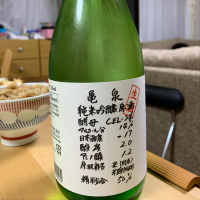 亀泉
生
純米吟醸原酒
酵母 CEL-24
アルコール分
日本酒度 -17
酸度 2.0
アミノ酸 1.2
原材料名
精米歩合 50%